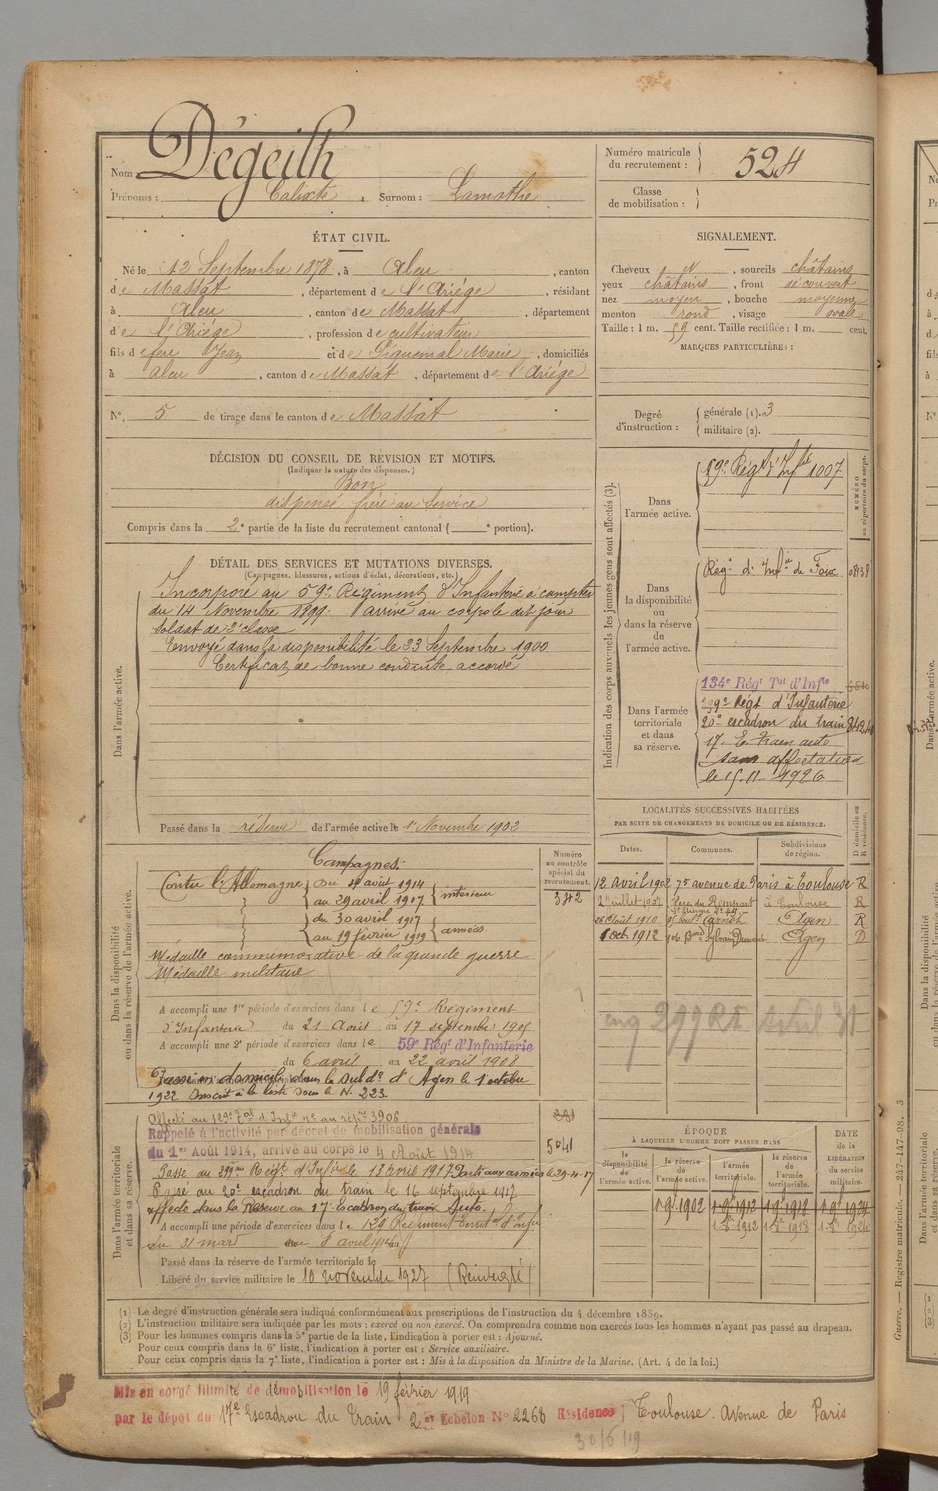 Nom Dégeilh
Prénoms : Calixte Surnom : Lamothe
Numéro matricule du recrutement : 524
Classe de mobilisation :
ÉTAT CIVIL.
Né le 12 Septembre 1878, à Aleu, canton
de Massat, département de l'Ariège, résidant
à Aleu, canton de Massat, département
de l'Ariège, profession de cultivateur
fils de feu Jean et de Piquemal Marie, domiciliés
à Aleu, canton de Massat, département de l'Ariège
N° 5 de tirage dans le canton de Massat
SIGNALEMENT.
Cheveux N, sourcils châtains
yeux châtains, front découvert
nez moyen, bouche moyenne
menton rond, visage ovale
Taille : 1 m. 59 cent. Taille rectifiée : 1 m. cent.
MARQUES PARTICULIÈRES :
Degré d'instruction : générale (1). 3
militaire (2).
DÉCISION DU CONSEIL DE REVISION ET MOTIFS.
(Indiquer la nature des dispenses.)
Bon
dispensé frère au service
Compris dans la 2e partie de la liste du recrutement cantonal ( e portion).
DÉTAIL DES SERVICES ET MUTATIONS DIVERSES.
(Campagnes, blessures, actions d'éclat, décorations, etc.)
Dans l'armée active.
Incorporé au 59e Régiment d'Infanterie à compter
du 14 Novembre 1899 arrivé au corps le dit jour
soldat de 2e classe
Envoyé dans la disponibilité le 23 Septembre 1900
Certificat de bonne conduite accordé
Passé dans la réserve de l'armée active le 1er Novembre 1902
Indication des corps auxquels les jeunes gens sont affectés (3).
NUMÉRO au répertoire du corps.
Dans l'armée active.
59e Régt d'Infie 1007
Dans la disponibilité ou dans la réserve de l'armée active.
Régt d'Infie de Foix
Dans l'armée territoriale et dans sa réserve.
134e Régt Tal d'Infie
299e Régt d'Infanterie
20e escadron du train
17e E. train auto
sans affectation
le 15-11-1926
LOCALITÉS SUCCESSIVES HABITÉES
PAR SUITE DE CHANGEMENTS DE DOMICILE OU DE RÉSIDENCE.
Dates. Communes. Subdivisions de région. D domicile ou R résidence.
12 avril 1902 75 avenue de Paris à Toulouse R
à Toulouse R
26 Août 1910 Carnot Agen R
1 oct 1912 Agen D
Avril 31
Dans la disponibilité ou dans la réserve de l'armée active.
Numéro au contrôle spécial du recrutement.
342
Campagnes.
Contre l'Allemagne du 4 août 1914
au 29 avril 1917 intérieur
du 30 avril 1917
au 19 février 1919 armées
Médaille commémorative de la grande guerre
Médaille militaire
A accompli une 1re période d'exercices dans le 59e Régiment
d'Infanterie du 21 Août au 17 septembre 1905
A accompli une 2e période d'exercices dans le 59e Régt d'Infanterie
du 6 avril au 22 avril 1908
Passé en domicile dans la Subdon d'Agen le 1 octobre
1922 Inscrit à la liste sous le N. 223
Dans l'armée territoriale et dans sa réserve.
Affecté au 129e Tal d'Infie n° au rép. 3906
Rappelé à l'activité par décret de mobilisation générale
du 1er Août 1914, arrivé au corps le 4 Août 1914
5041
Passé au 299me Régt d'Infie le 12 avril 1917. Parti aux armées le 29-4-17
Passé au 20e escadron du train le 16 septembre 1917
affecté dans la Réserve au 17e Escadron du train Auto.
A accompli une période d'exercices dans le 129 Régiment Territal d'Infie
du 31 mars au 8 avril
Passé dans la réserve de l'armée territoriale le
Libéré du service militaire le 10 novembre 1927
ÉPOQUE
À LAQUELLE L'HOMME DOIT PASSER DANS
la disponibilité de l'armée active. la réserve de l'armée active. l'armée territoriale. la réserve de l'armée territoriale.
DATE de la LIBÉRATION du service militaire.
1-9bre 1902 1-9bre 1912 1-9bre 1918 1-9bre 1924
(1) Le degré d'instruction générale sera indiqué conformément aux prescriptions de l'instruction du 4 décembre 1889.
(2) L'instruction militaire sera indiquée par les mots : exercé ou non exercé. On comprendra comme non exercés tous les hommes n'ayant pas passé au drapeau.
(3) Pour les hommes compris dans la 5e partie de la liste, l'indication à porter est : Ajourné.
Pour ceux compris dans la 6e liste, l'indication à porter est : Service auxiliaire.
Pour ceux compris dans la 7e liste, l'indication à porter est : Mis à la disposition du Ministre de la Marine. (Art. 4 de la loi.)
Mis en congé illimité de démobilisation le 19 février 1919
par le dépôt du 17e Escadron du train 2er Echelon N° 2268 Résidence Toulouse. Avenue de Paris
30/6/19
Guerre. — Registre matricule. — 247-147-98. 3